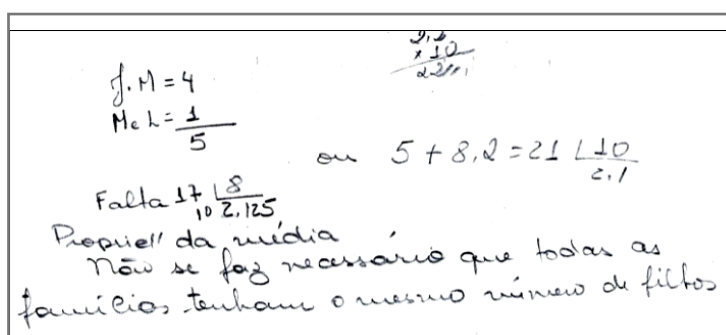 2,1
× 10
J.M = 4
M e L = 1
5
ou 5 + 8.2 = 21 | 10
2,1
Falta 17 | 8
10 2.125
Propried da média
Não se faz necessário que todas as
famílias tenham o mesmo número de filhos